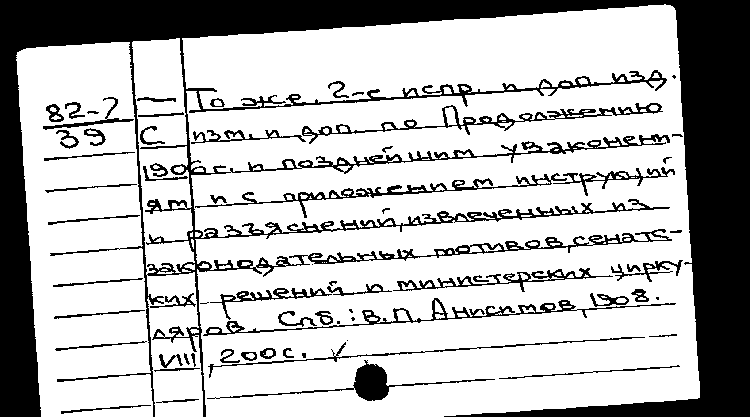 82-7 — То же. 2-е испр. и доп. изд.
39 С изм. и доп. по Продолжению
1906 г. и позднейшим узаконени-
ям и с приложением инструкций
и разъяснений, извлеченных из
законодательных мотивов, сенатс-
ких решений и министерских цирку-
ляров. Спб.: В.П. Анисимов, 1908.
VIII, 200 с. ✓